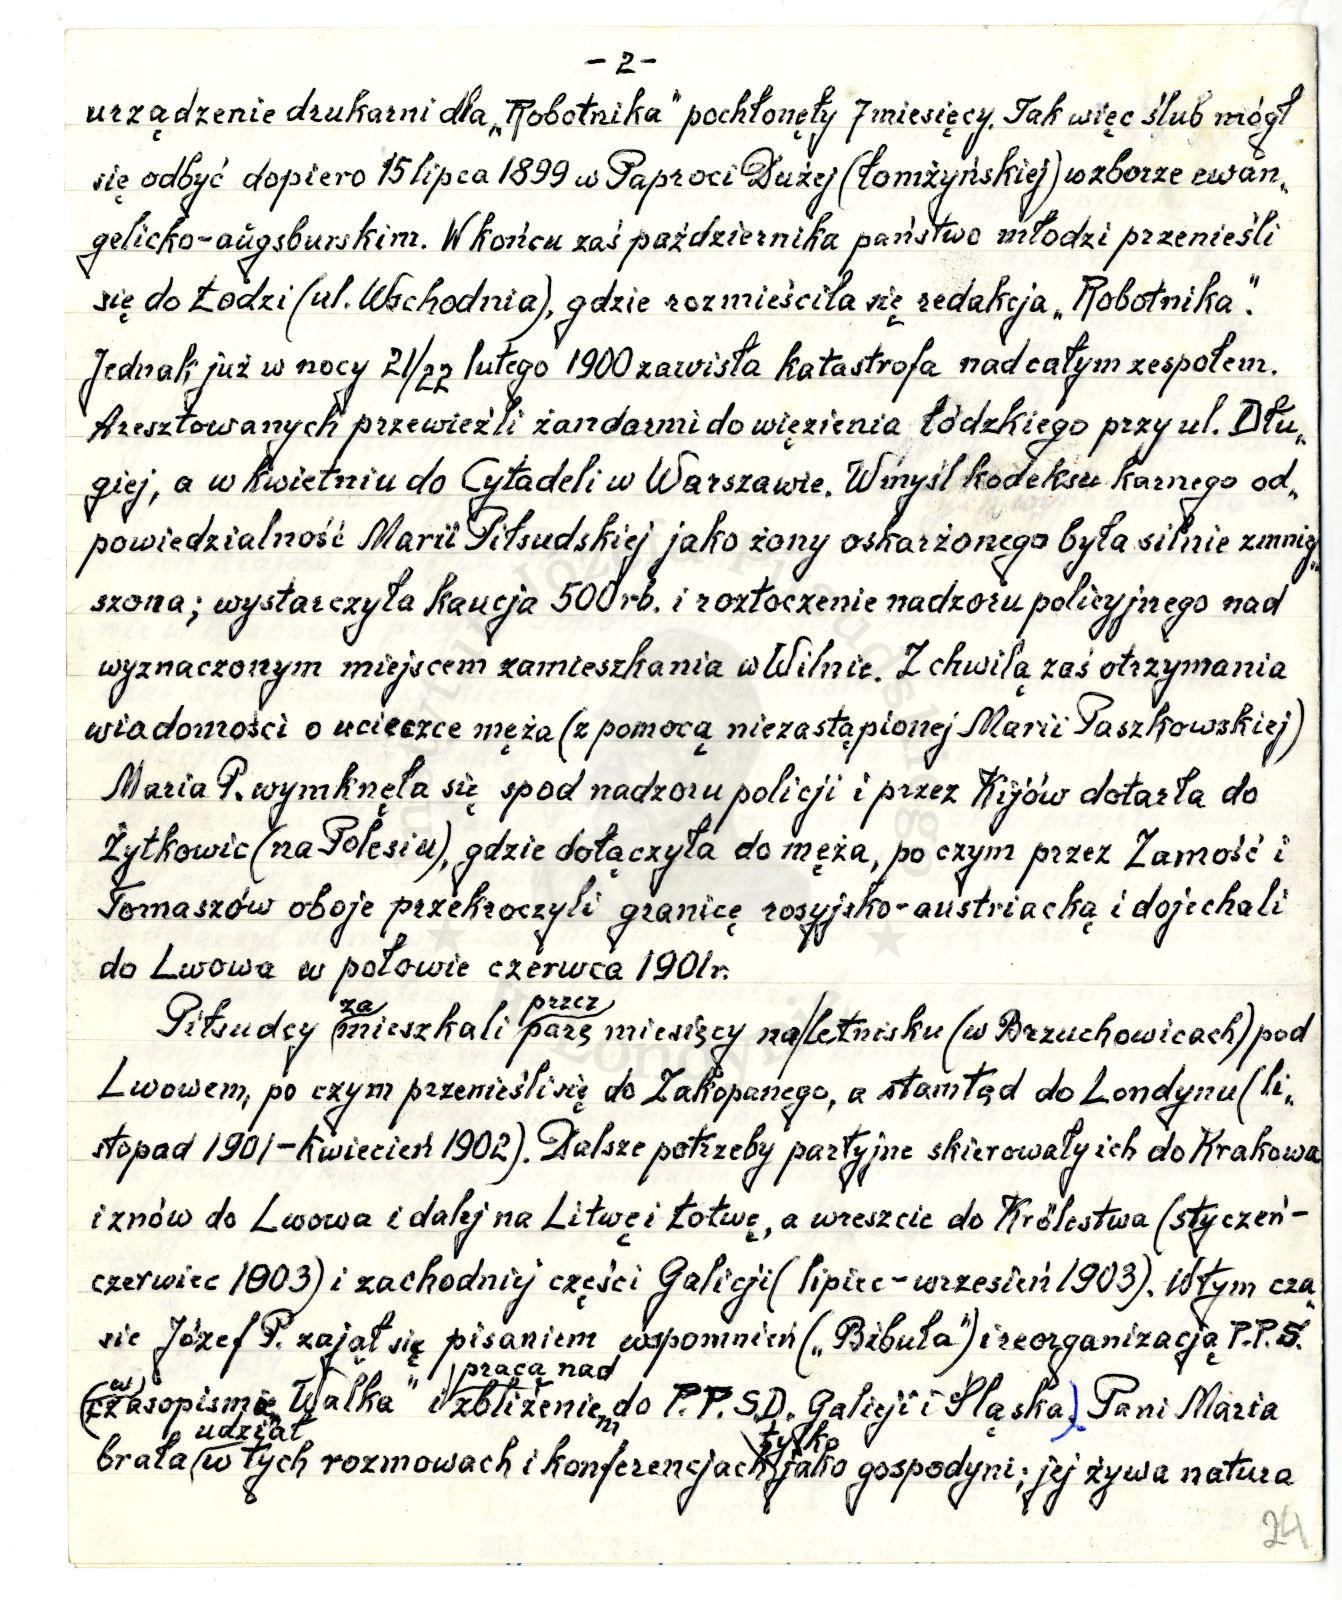 - 2 -
urządzenie drukarni dla „Robotnika" pochłonęły 7 miesięcy. Tak więc ślub mógł
się odbyć dopiero 15 lipca 1899 w Paproci Dużej (łomżyńskiej) w zborze ewan„
gelicko-augsburskim. W końcu zaś października państwo młodzi przenieśli
się do Łodzi (ul. Wschodnia), gdzie rozmieściła się redakcja „Robotnika".
Jednak już w nocy 21/22 lutego 1900 zawisła katastrofa nad całym zespołem.
Aresztowanych przewieźli żandarmi do więzienia łódzkiego przy ul. Dłu„
giej, a w kwietniu do Cytadeli w Warszawie. W myśl kodeksu karnego od„
powiedzialność Marii Piłsudskiej jako żony oskarżonego była silnie zmniej„
szona; wystarczyła kaucja 500 rb. i roztoczenie nadzoru policyjnego nad
wyznaczonym miejscem zamieszkania w Wilnie. Z chwilą zaś otrzymania
wiadomości o ucieczce męża (z pomocą niezastąpionej Marii Paszkowskiej)
Maria P. wymknęła się spod nadzoru policji i przez Kijów dotarła do
Żytkowic (na Polesiu), gdzie dołączyła do męża, po czym przez Zamość i
Tomaszów oboje przekroczyli granicę rosyjsko-austriacką i dojechali
do Lwowa w połowie czerwca 1901 r.
za przez
Piłsudcy mieszkali parę miesięcy na letnisku (w Brzuchowicach) pod
Lwowem, po czym przenieśli się do Zakopanego, a stamtąd do Londynu (li„
stopad 1901 - kwiecień 1902). Dalsze potrzeby partyjne skierowały ich do Krakowa
i znów do Lwowa i dalej na Litwę i Łotwę, a wreszcie do Królestwa (styczeń -
czerwiec 1903) i zachodniej części Galicji (lipiec - wrzesień 1903). W tym cza„
sie Józef P. zajął się pisaniem wspomnień („Bibuła") i reorganizacją P.P.S.
w pracą nad
(czasopismie „Walka" i zbliżeniem do P.P.S.D. Galicji i Śląska). Pani Maria
udział tylko
brała w tych rozmowach i konferencjach jako gospodyni; jej żywa natura
24
Instytut Józefa Piłsudskiego
w Londynie